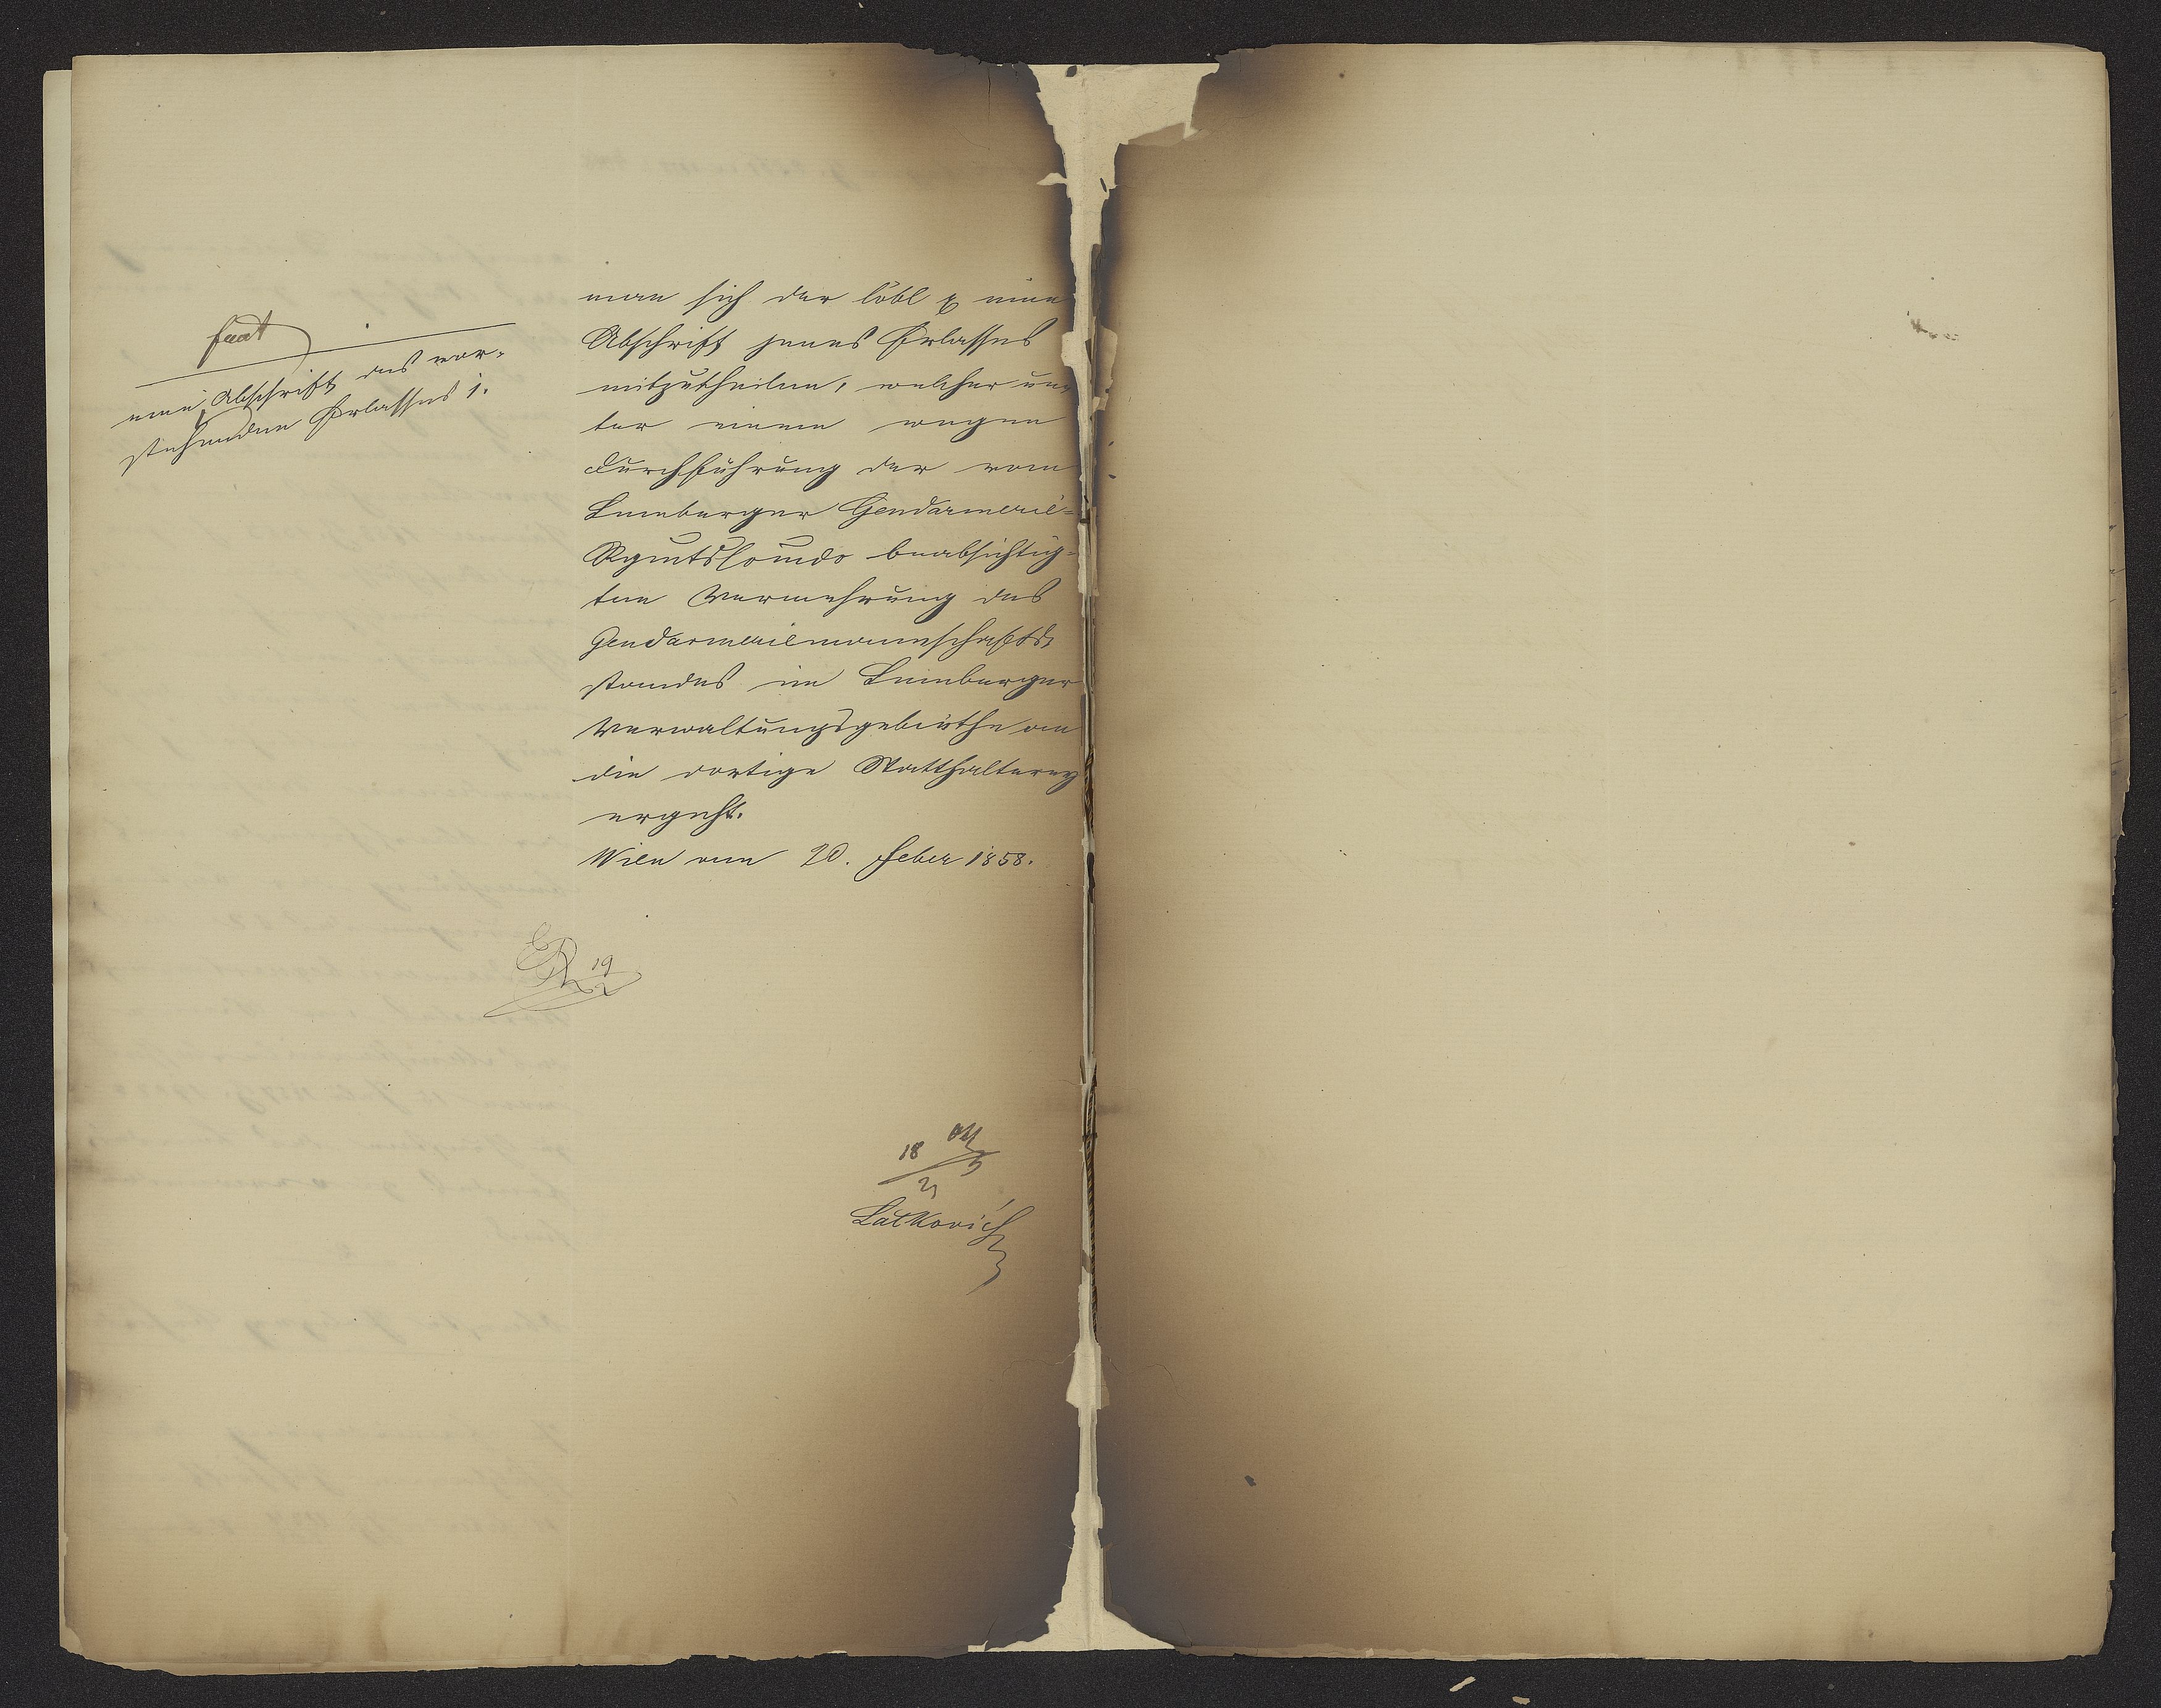 fiat
eine Abschrift des vor-
stehenden Erlasses i.
man sich der löbl eine
Abschrift jenes Erlasses
mitzutheilen, welcher un-
ter einem wegen
Durchführung der vom
Lemberger Gendarmerie-
Rgmtscomdo beabsichtig-
ten Vermehrung des
Gendarmeriemannschafts-
standes im Lemberger
Verwaltungsgebiethe an
die dortige Statthalterey
ergeht.
Wien am 20. Feber 1858.
19
2
18
2
Latkovich